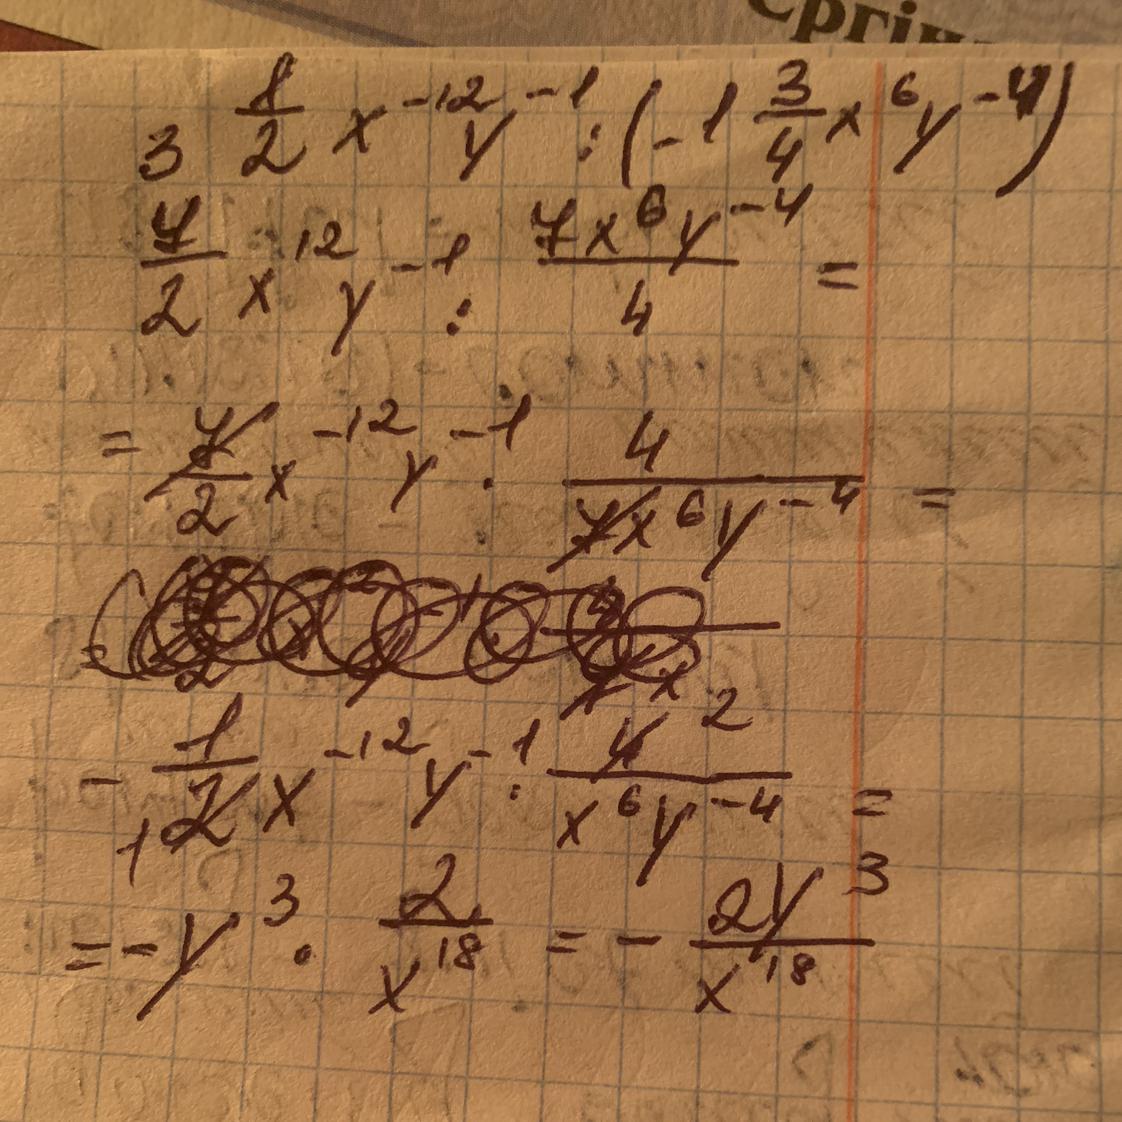 Сргін
3 1/2 x^-12 y^-1 : (-1 3/4 x^6 y^-4)
7/2 x^12 y^-1 : 7x^6 y^-4/4 =
= 7/2 x^-12 y^-1 · 4/7x^6 y^-4 =
- 1/2 x^-12 y^-1 · 4/x^6 y^-4 =
1 2
= - y^3 · 2/x^18 = - 2y^3/x^18